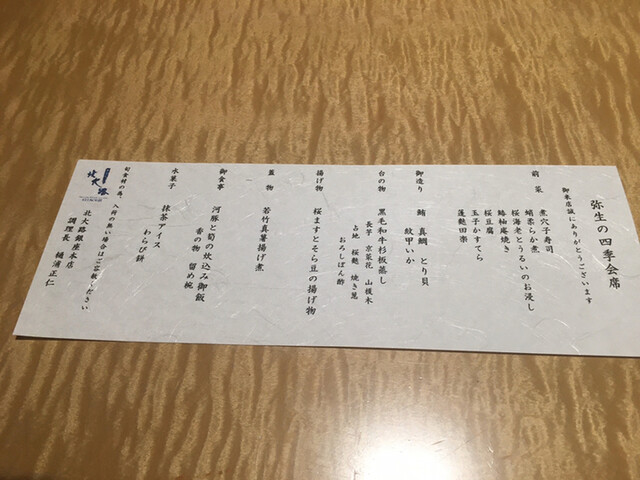 弥生の四季会席
御来店誠にありがとうございます
前菜
煮穴子寿司
蛸柔らか煮
桜海老とうるいのお浸し
鰆柚庵焼き
桜豆腐
玉子かすてら
蓬麩田楽
御造り
鮪 真鯛 とり貝
紋甲いか
台の物
黒毛和牛杉板蒸し
長芋 京菜花 山榎木
占地 桜麩 焼き葱
おろしぽん酢
揚げ物
桜ますとそら豆の揚げ物
蓋物
若竹真薯揚げ煮
御食事
河豚と筍の炊込み御飯
香の物 留め椀
水菓子
抹茶アイス
わらび餅
旬食材の為、入荷の無い場合はご容赦ください
北大路銀座本店
調理長 樋浦正仁
北大路